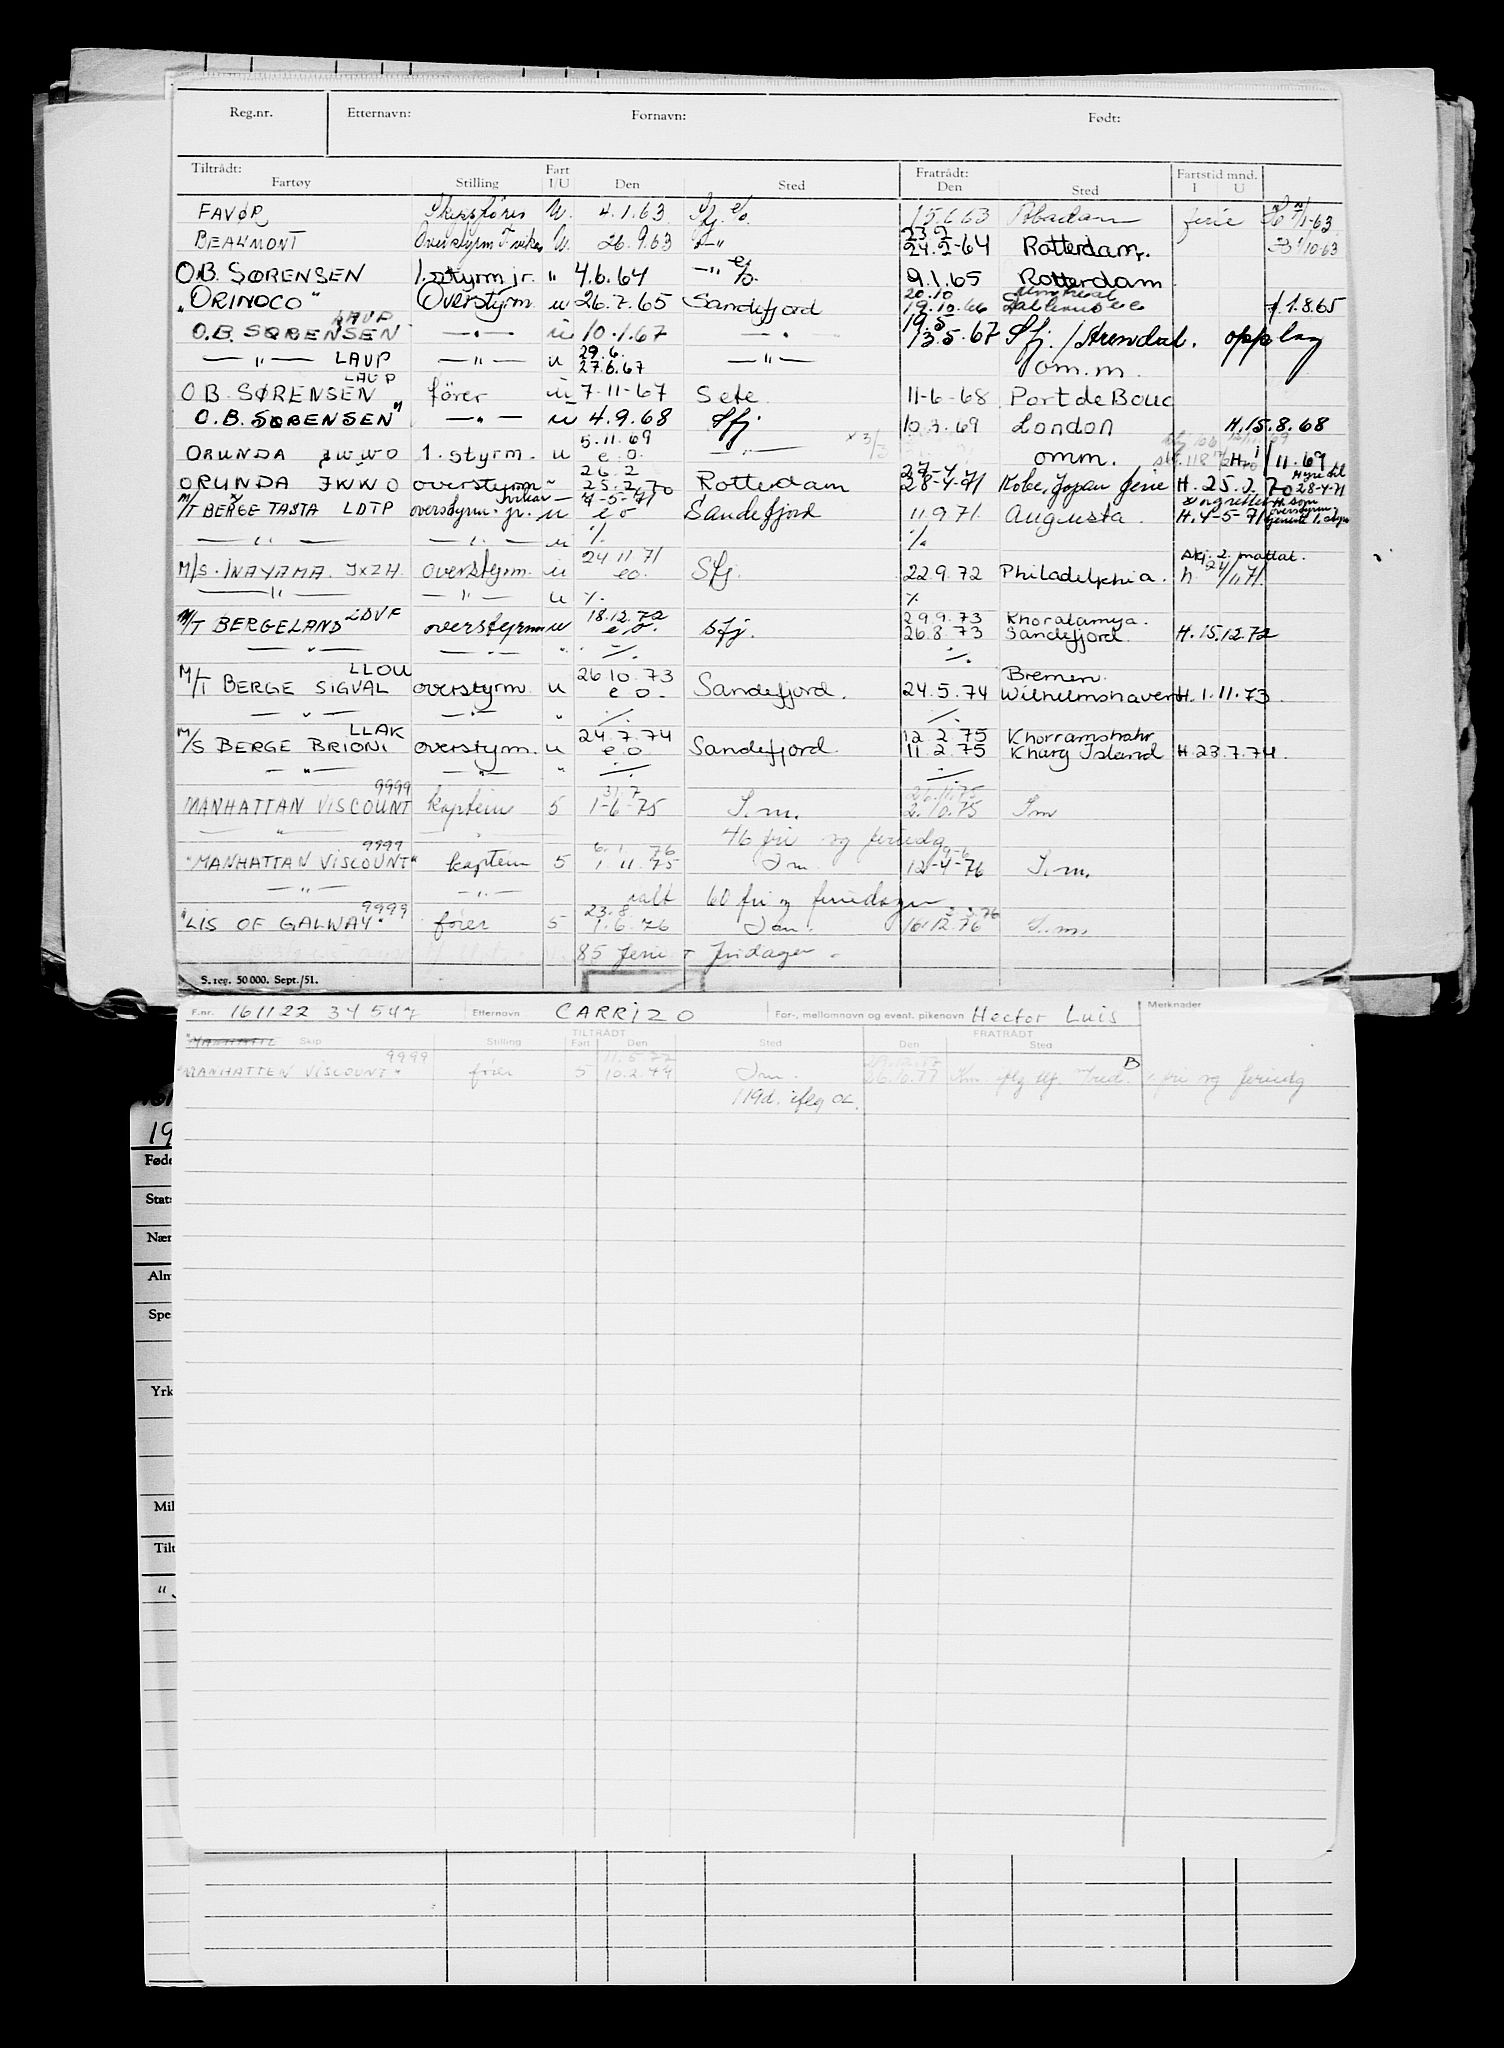 Reg.nr. Etternavn: Fornavn: Født:
Tiltrådt: Fartøy Stilling Fart I/U Den Sted Fratrådt: Den Sted Fartstid mnd. I U
FAVØR U. 4.1.63 Sfj. e/o. 15.6.63 Abadan ferie
BEAUMONT Overstyrm U. 26.9.63 — " 23.2 24.2-64 Rotterdam.
O.B. SØRENSEN 1. styrm jr. " 4.6.64 — " — e/o. 9.1.65 Rotterdam
"ORINOCO" Overstyrm u 26.7.65 Sandefjord 20.10 19.10.66 f 1.8.65
O.B. SØRENSEN LAUP — " — u 10.1.67 — " 19.5 13.5.67 Sfj. / Arendal. opplag
— " — LAUP — " — u 29.6. 27.6.67 — " — om.m.
O B. SØRENSEN LAUP fører u 7-11-67 Sete 11-6-68 Port de Bouc
O.B. SØRENSEN" — " — u 4.9.68 Sfj 10.3.69 London H.15.8.68
ORUNDA JWWO 1. styrm. u 5.11.69 e.o. — " — x 3/3 omm. H. 1/11.69
ORUNDA JWWO overstyrm " 26.2 25.2.70 Rotterdam 27-4- 28-4-71 Kobe, Japan ferie H. 25.2.70 28-4-71
M/T BERGE TASTA LDTP overstyrm. jr. u 4-5-71 e o Sandefjord 11.9.71 Augusta. H. 4-5-71
— " — — " — u ./. ./.
M/S. INAYAMA. JXZH. overstyrm. u 24.11.71 eo. Sfj. 22.9.72 Philadelphia. h 24/11.71.
— " — — " — u ./. ./.
M/T BERGELAND LDVF overstyrm u 18.12.72 e o. sfj. 29.9.73 26.8.73 Khoralamya. Sandefjord. H. 15.12.72
— " — — " — " ./. ./.
M/T BERGE SIGVAL LLOU overstyrm. u 26.10.73 e o. Sandefjord. 24.5.74 Bremen. Wilhelmshaven H. 1.11.73.
— " — — " — " ./. ./.
M/S BERGE BRIONI LLAK overstyrm. u 24.7.74 e o Sandefjord. 12.2.75 11.2.75 Khorramshahr Kharg Island H. 23.7.74.
— " — — " — " ./. ./.
MANHATTAN VISCOUNT 9999 kaptein 5 31.7 1-6-75 I.m. 26.11.75 2.10.75 I.m
— " — " 46 fri og feriedg
"MANHATTAN VISCOUNT" 9999 kaptein 5 6.1.76 1.11.75 I m. 9-6 12-4-76 I.m.
— " — — " — 60 fri og feriedager
"LIS OF GALWAY" 9999 fører 5 23.8 1.6.76 I m. 16.12.76 I.m.
85 ferie + fridager.
S. reg. 50 000. Sept./51.
F.nr. 161122 34547 Etternavn CARRIZO For-, mellomnavn og event. pikenavn Hector Luis Merknader
TILTRÅDT FRATRÅDT
Skip Stilling Fart Den Sted Den Sted
"MANHATTEN VISCOUNT" 9999 fører 5 11.5.77 10.2.77 I m. 26.10.77 B fri og feriedg
119d. iflg OL.
19
Føde
Stat
Nær
Alm
Spe
Yrk
Mil
Tilt